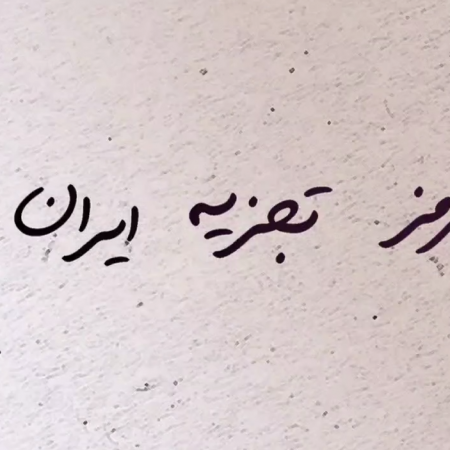 تجزیه ایران